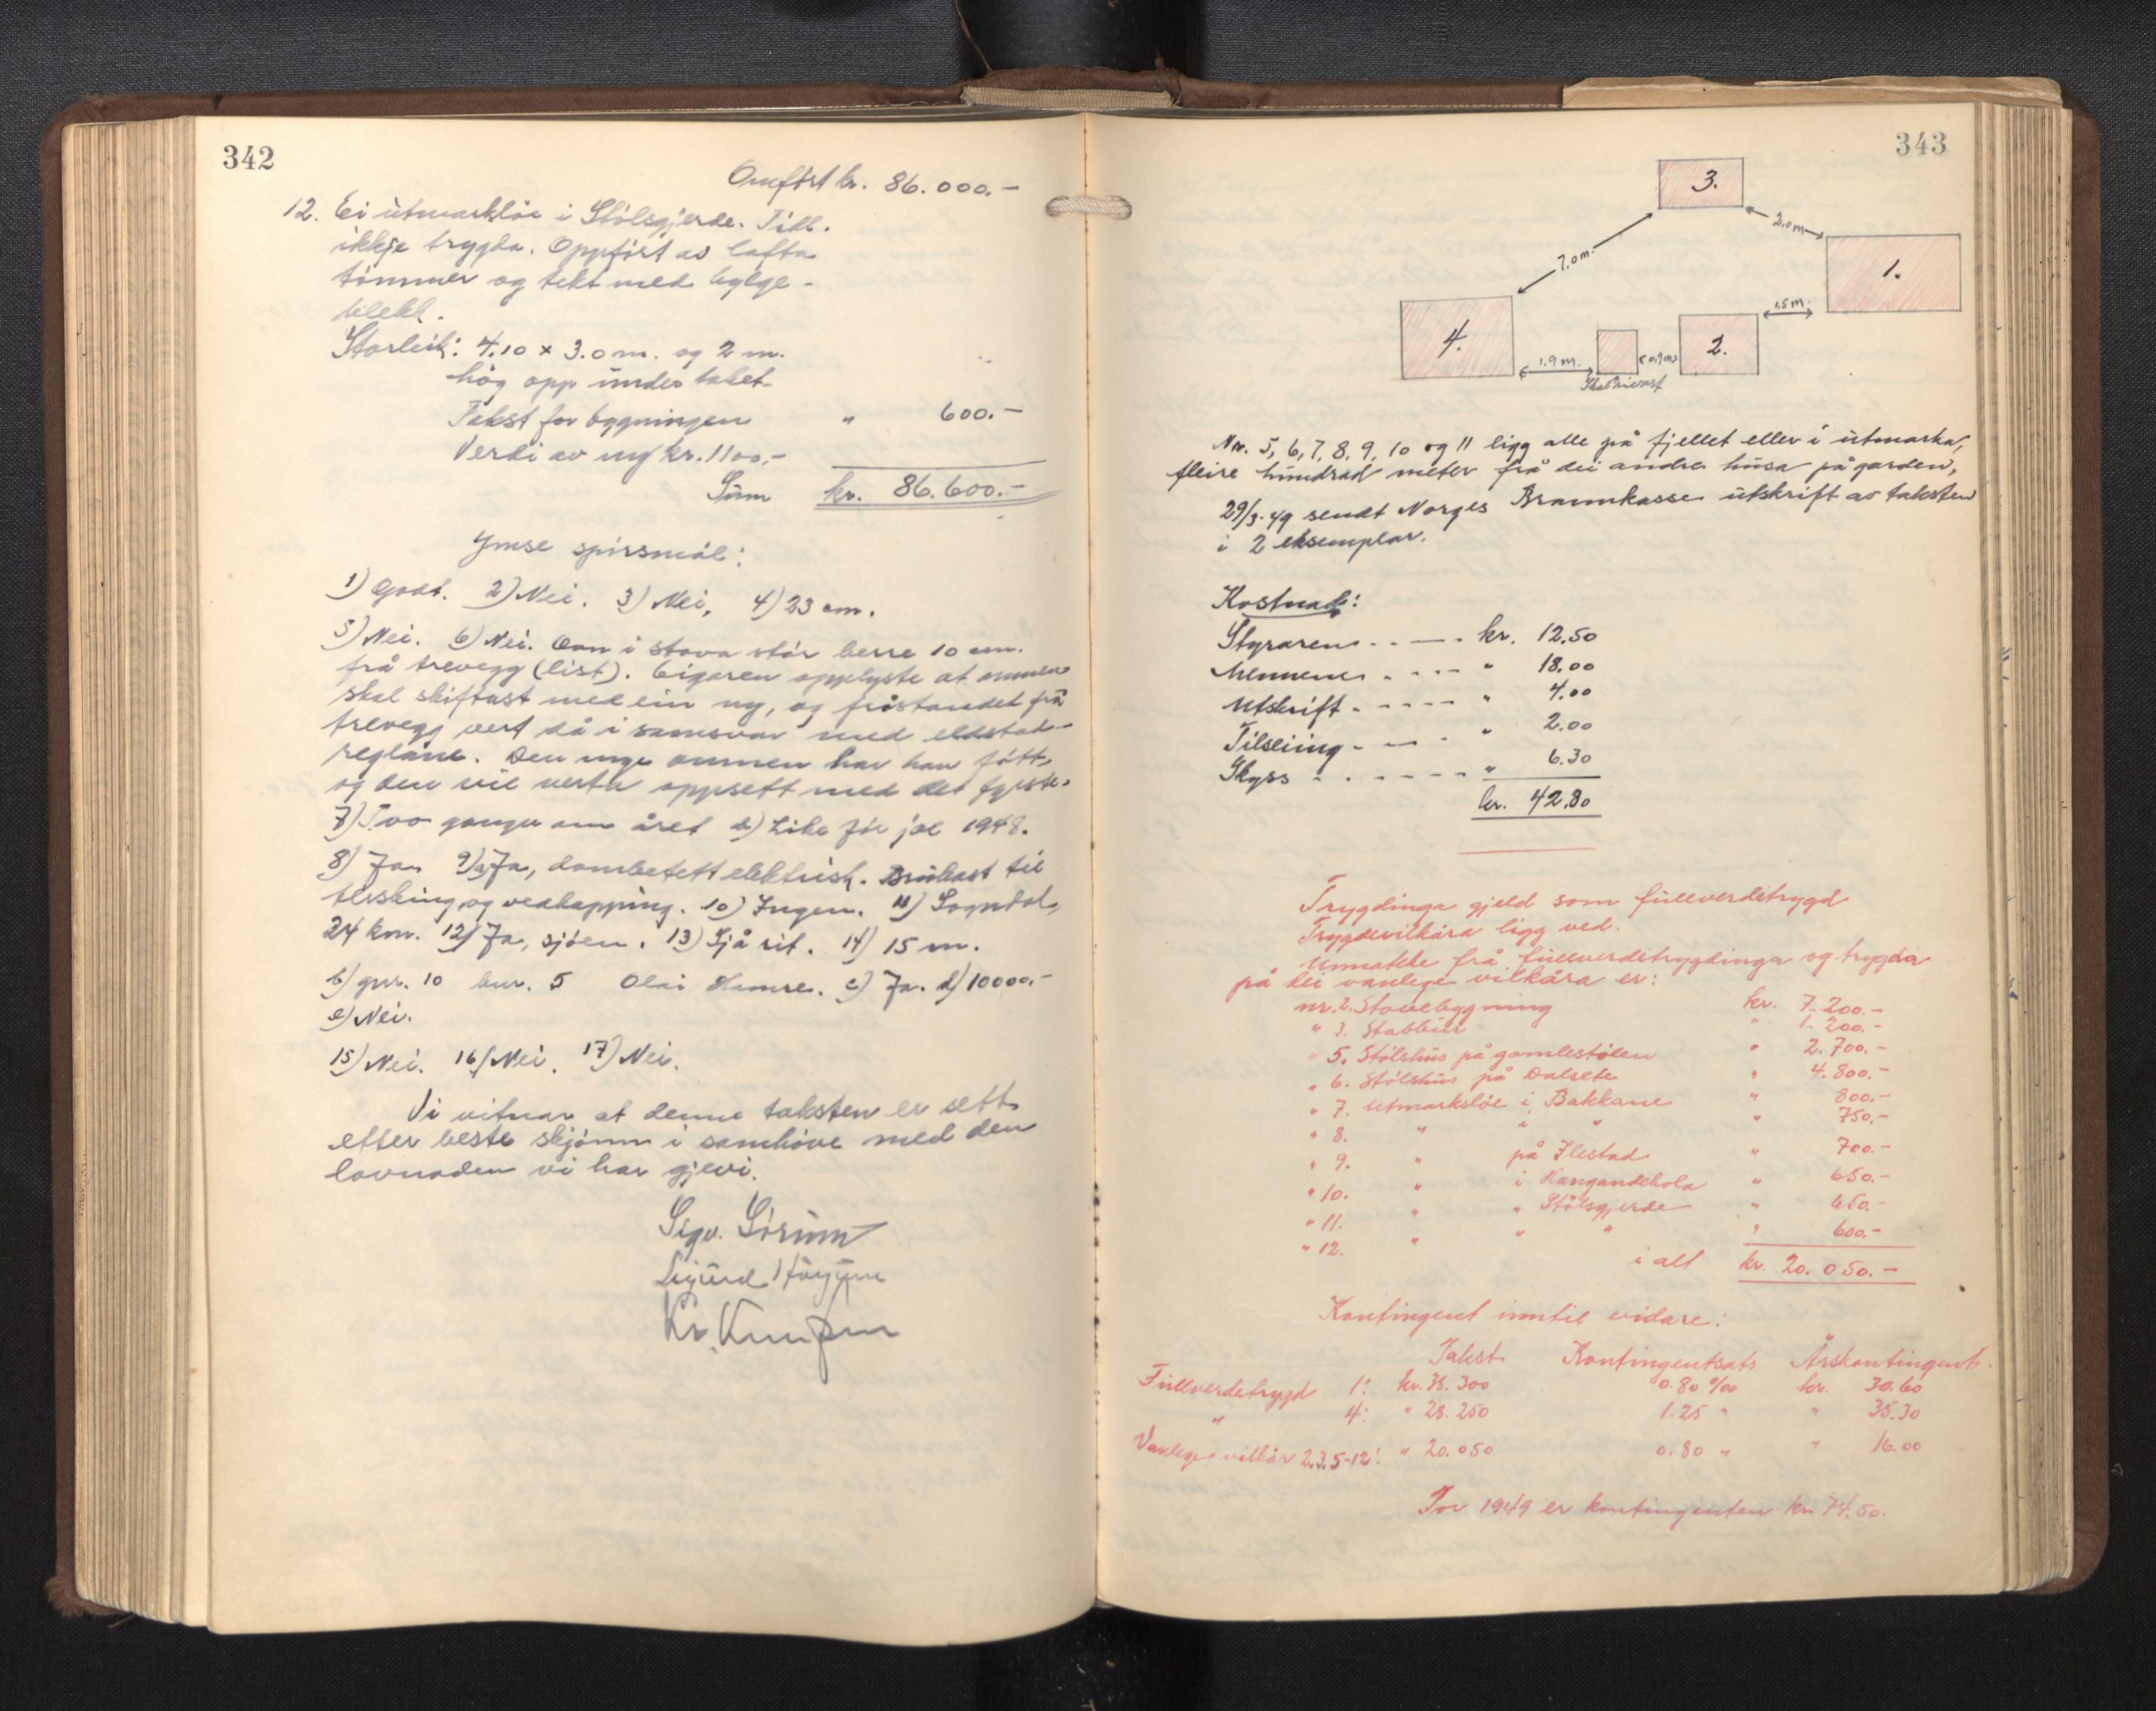 342
Omført kr. 86.000.-
12. Ei utmarkløe i Stølsgjerde. Tidl.
ikkje trygda. Oppført av lafta
tømmer og tekt med bylgje-
blekk.
Storleik: 4.10 x 3.0 m. og 2 m.
høg opp under taket.
Takst for bygningen " 600.-
Verdi av ny kr. 1100.-
Sum kr. 86.600.-
Ymse spørsmål:
1) Godt. 2) Nei. 3) Nei. 4) 23 cm.
5) Nei. 6) Nei. Omn i stova står berre 10 cm.
frå trevegg (list). Eigaren opplyste at omnen
skal skiftast med ein ny, og fråstandet frå
trevegg vert då i samsvar med eldstad-
reglane. Den nye omnen har han fått,
og den vil verta oppsett med det fyrste.
7) Tvo gonger om året b) Like før jol 1948.
8) Ja. 9) a) Ja, dambetett elektrisk. Brukast til
tresking og vedkapping. 10) Ingen. 11) Sogndal,
24 km. 12) Ja, sjøen. 13) Sjå rit. 14) 15 m.
b) gnr. 10 bnr. 5 Olai Hamre. c) Ja. d) 10000.-
e) Nei.
15) Nei. 16) Nei. 17) Nei.
Vi vitnar at denne taksten er sett
etter beste skjønn i samhøve med den
lovnaden vi har gjevi.
Sigv. Sørum
Sigurd
Kr.
343
3.
2.0 m
7.0 m.
1.
1.5 m.
4.
2.
1.9 m.
0.9 m
Nr. 5, 6, 7, 8, 9, 10 og 11 ligg alle på fjellet eller i utmarka,
fleire hundrad meter frå dei andre husa på garden,
29/3-49 sendt Norges Brannkasse utskrift av taksten
i 2 eksemplar.
Kostnad:
Styraren . . - . kr. 12.50
Mennene . . - - - " 18.00
Utskrift - - - - - " 4.00
Tilseiing - - - . " 2.00
Skyss - . - - - - " 6.30
kr. 42.80
Trygdinga gjeld som fullverditrygd
Trygdevilkåra ligg ved.
Unnateke frå fullverditrygdinga og trygda
på dei vanlege vilkåra er:
nr. 2. Stovebygning kr. 7.200.-
" 3. Stabbur " 1.200.-
" 5. Stølshus på gamlestølen " 2.700.-
" 6. Stølshus på Dalsete " 4.800.-
" 7. Utmarksløe i Bakkane " 800.-
" 8. " i " " 750.-
" 9. " på Ilestad " 700.-
" 10. " i Hangandehola " 650.-
" 11. " " Stølsgjerde " 650.-
" 12. " " " " 600.-
i alt kr. 20.050.-
Kontingent inntil vidare:
Takst Kontingentsats Årskontingent
Fullverdetrygd 1: kr. 38.300 0.80 ‰ kr. 30.60
" 4: " 28.250 1.25 " " 35.30
Vanlege vilkår 2.3.5-12: " 20.050 0.80 " " 16.00
For 1949 er kontingenten kr. 74.50.